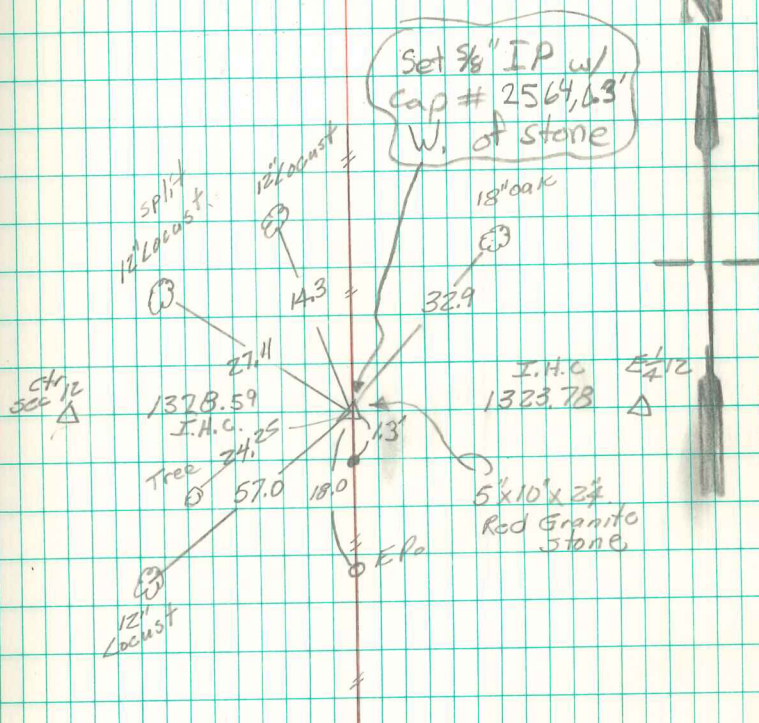 N
Set 5/8" IP w/
Cap # 2564, 1.3'
W. of stone
12" Locust
split
12" Locust
18" oak
14.3
32.9
27.11
Ctr
Sec 12
1328.59
I.H.C.
I.H.C
1323.78
E 1/4 12
1.3'
Tree
24.25
57.0
18.0
5"x10"x2"
Red Granite
stone
EPo
12"
Locust